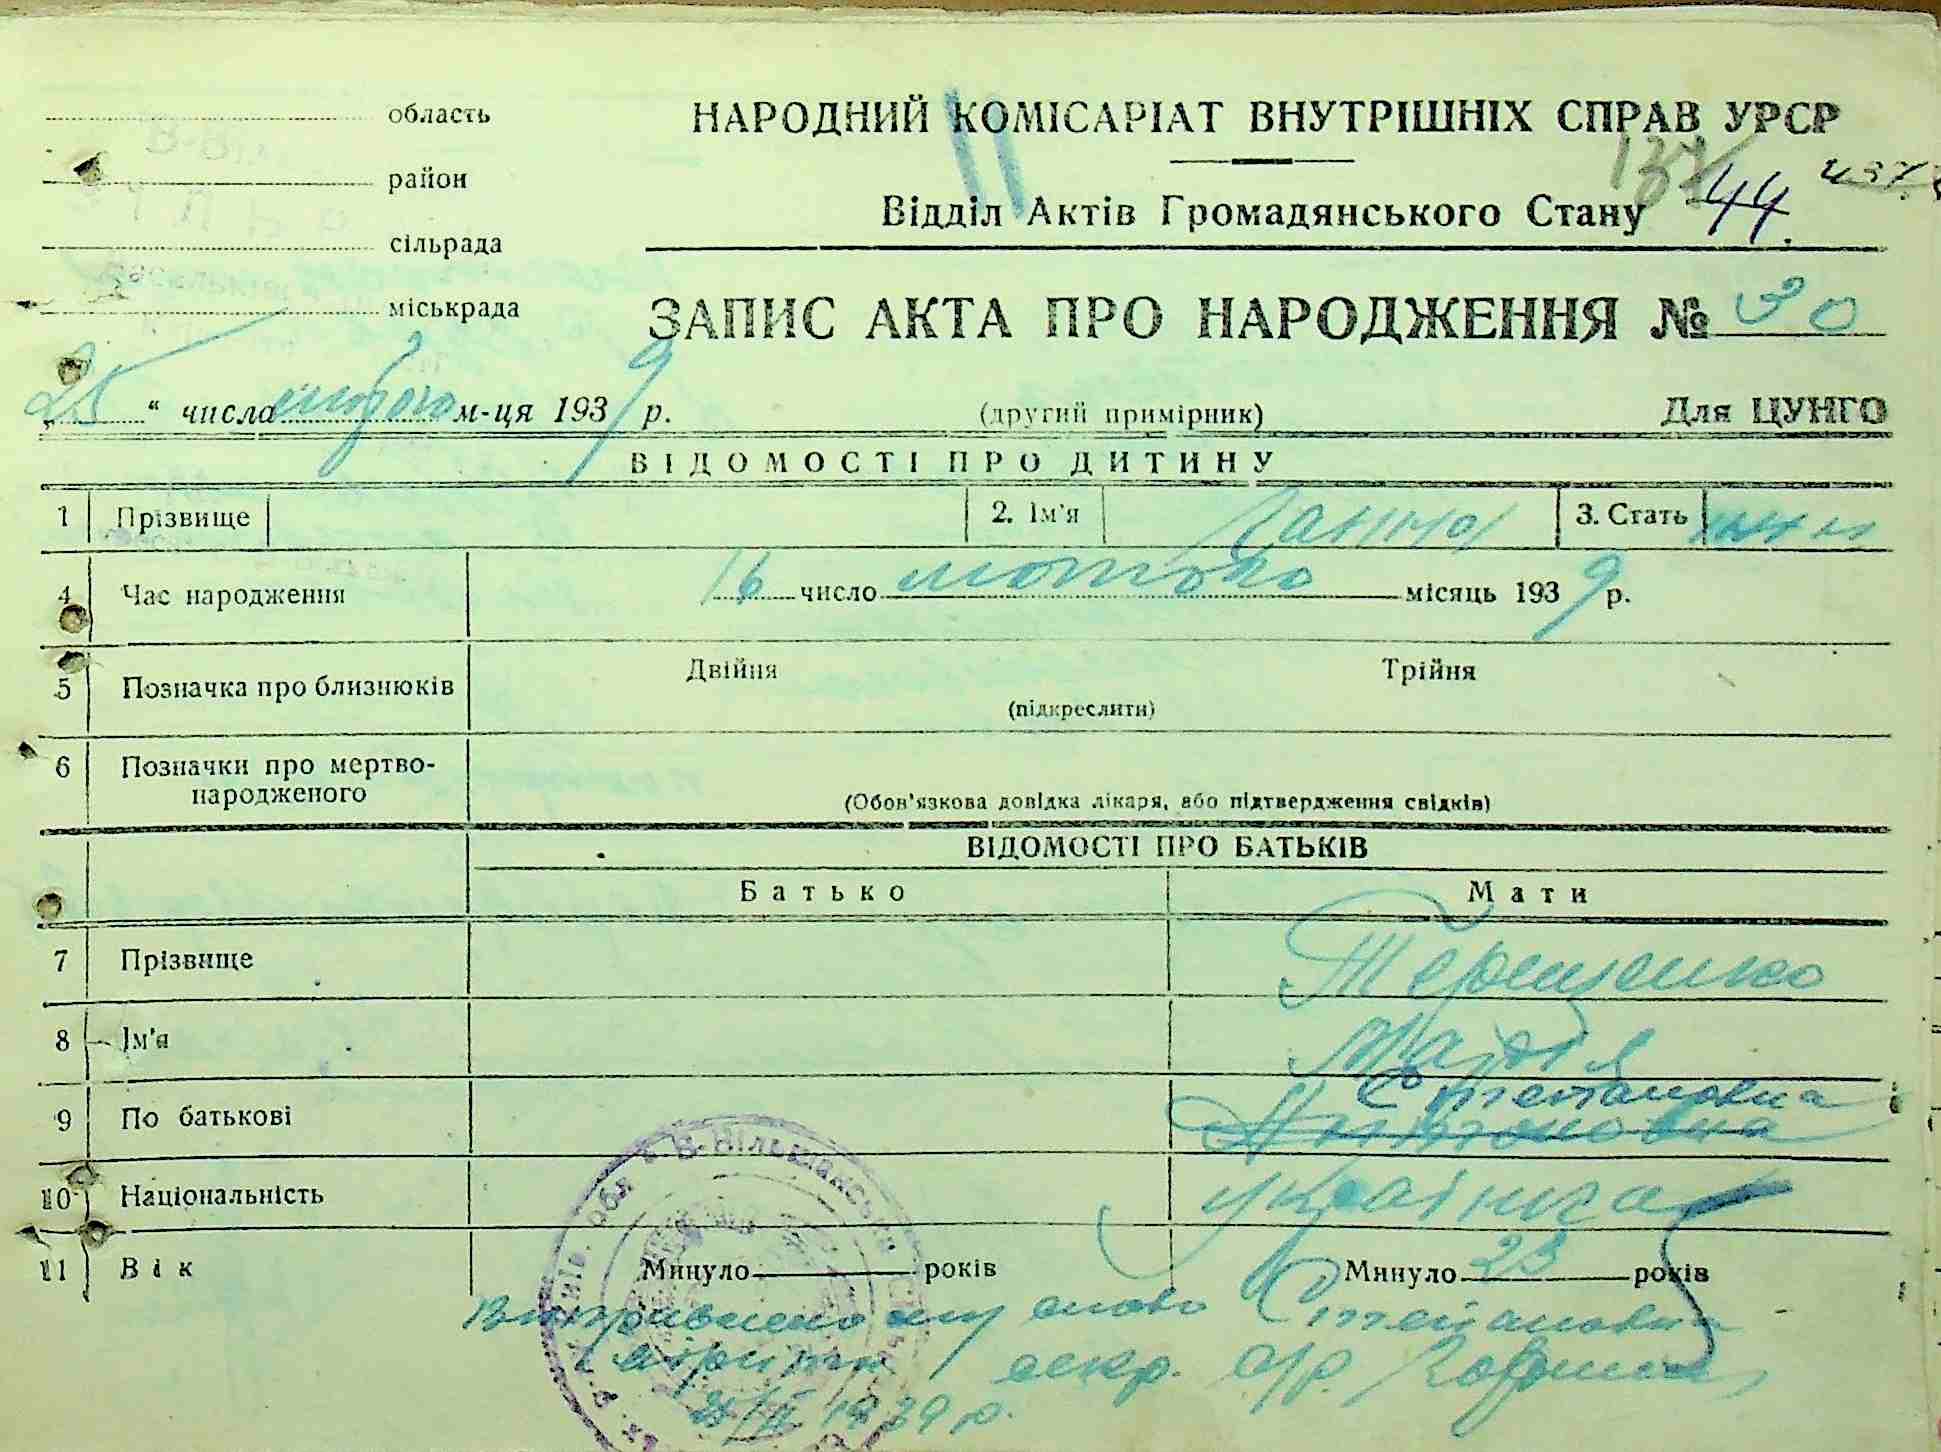 область
НАРОДНИЙ КОМІСАРІАТ ВНУТРІШНІХ СПРАВ УРСР
район
137 44.
Відділ Актів Громадянського Стану
сільрада
міськрада
ЗАПИС АКТА ПРО НАРОДЖЕННЯ № 30
„25“ числа лютого м-ця 1939 р.
(другий примірник)
Для ЦУНГО
ВІДОМОСТІ ПРО ДИТИНУ
1 Прізвище 2. Ім'я Ганна 3. Стать
4 Час народження 16 число лютого місяць 1939 р.
5 Позначка про близнюків Двійня Трійня
(підкреслити)
6 Позначки про мертво-
народженого
(Обов'язкова довідка лікаря, або підтвердження свідків)
ВІДОМОСТІ ПРО БАТЬКІВ
Батько Мати
7 Прізвище Терещенко
8 Ім'я Марія
9 По батькові Степановна
Антоновна
10 Національність українка
11 Вік Минуло років Минуло 23 років
слово Степановна
секр. с/р.
1939 р.